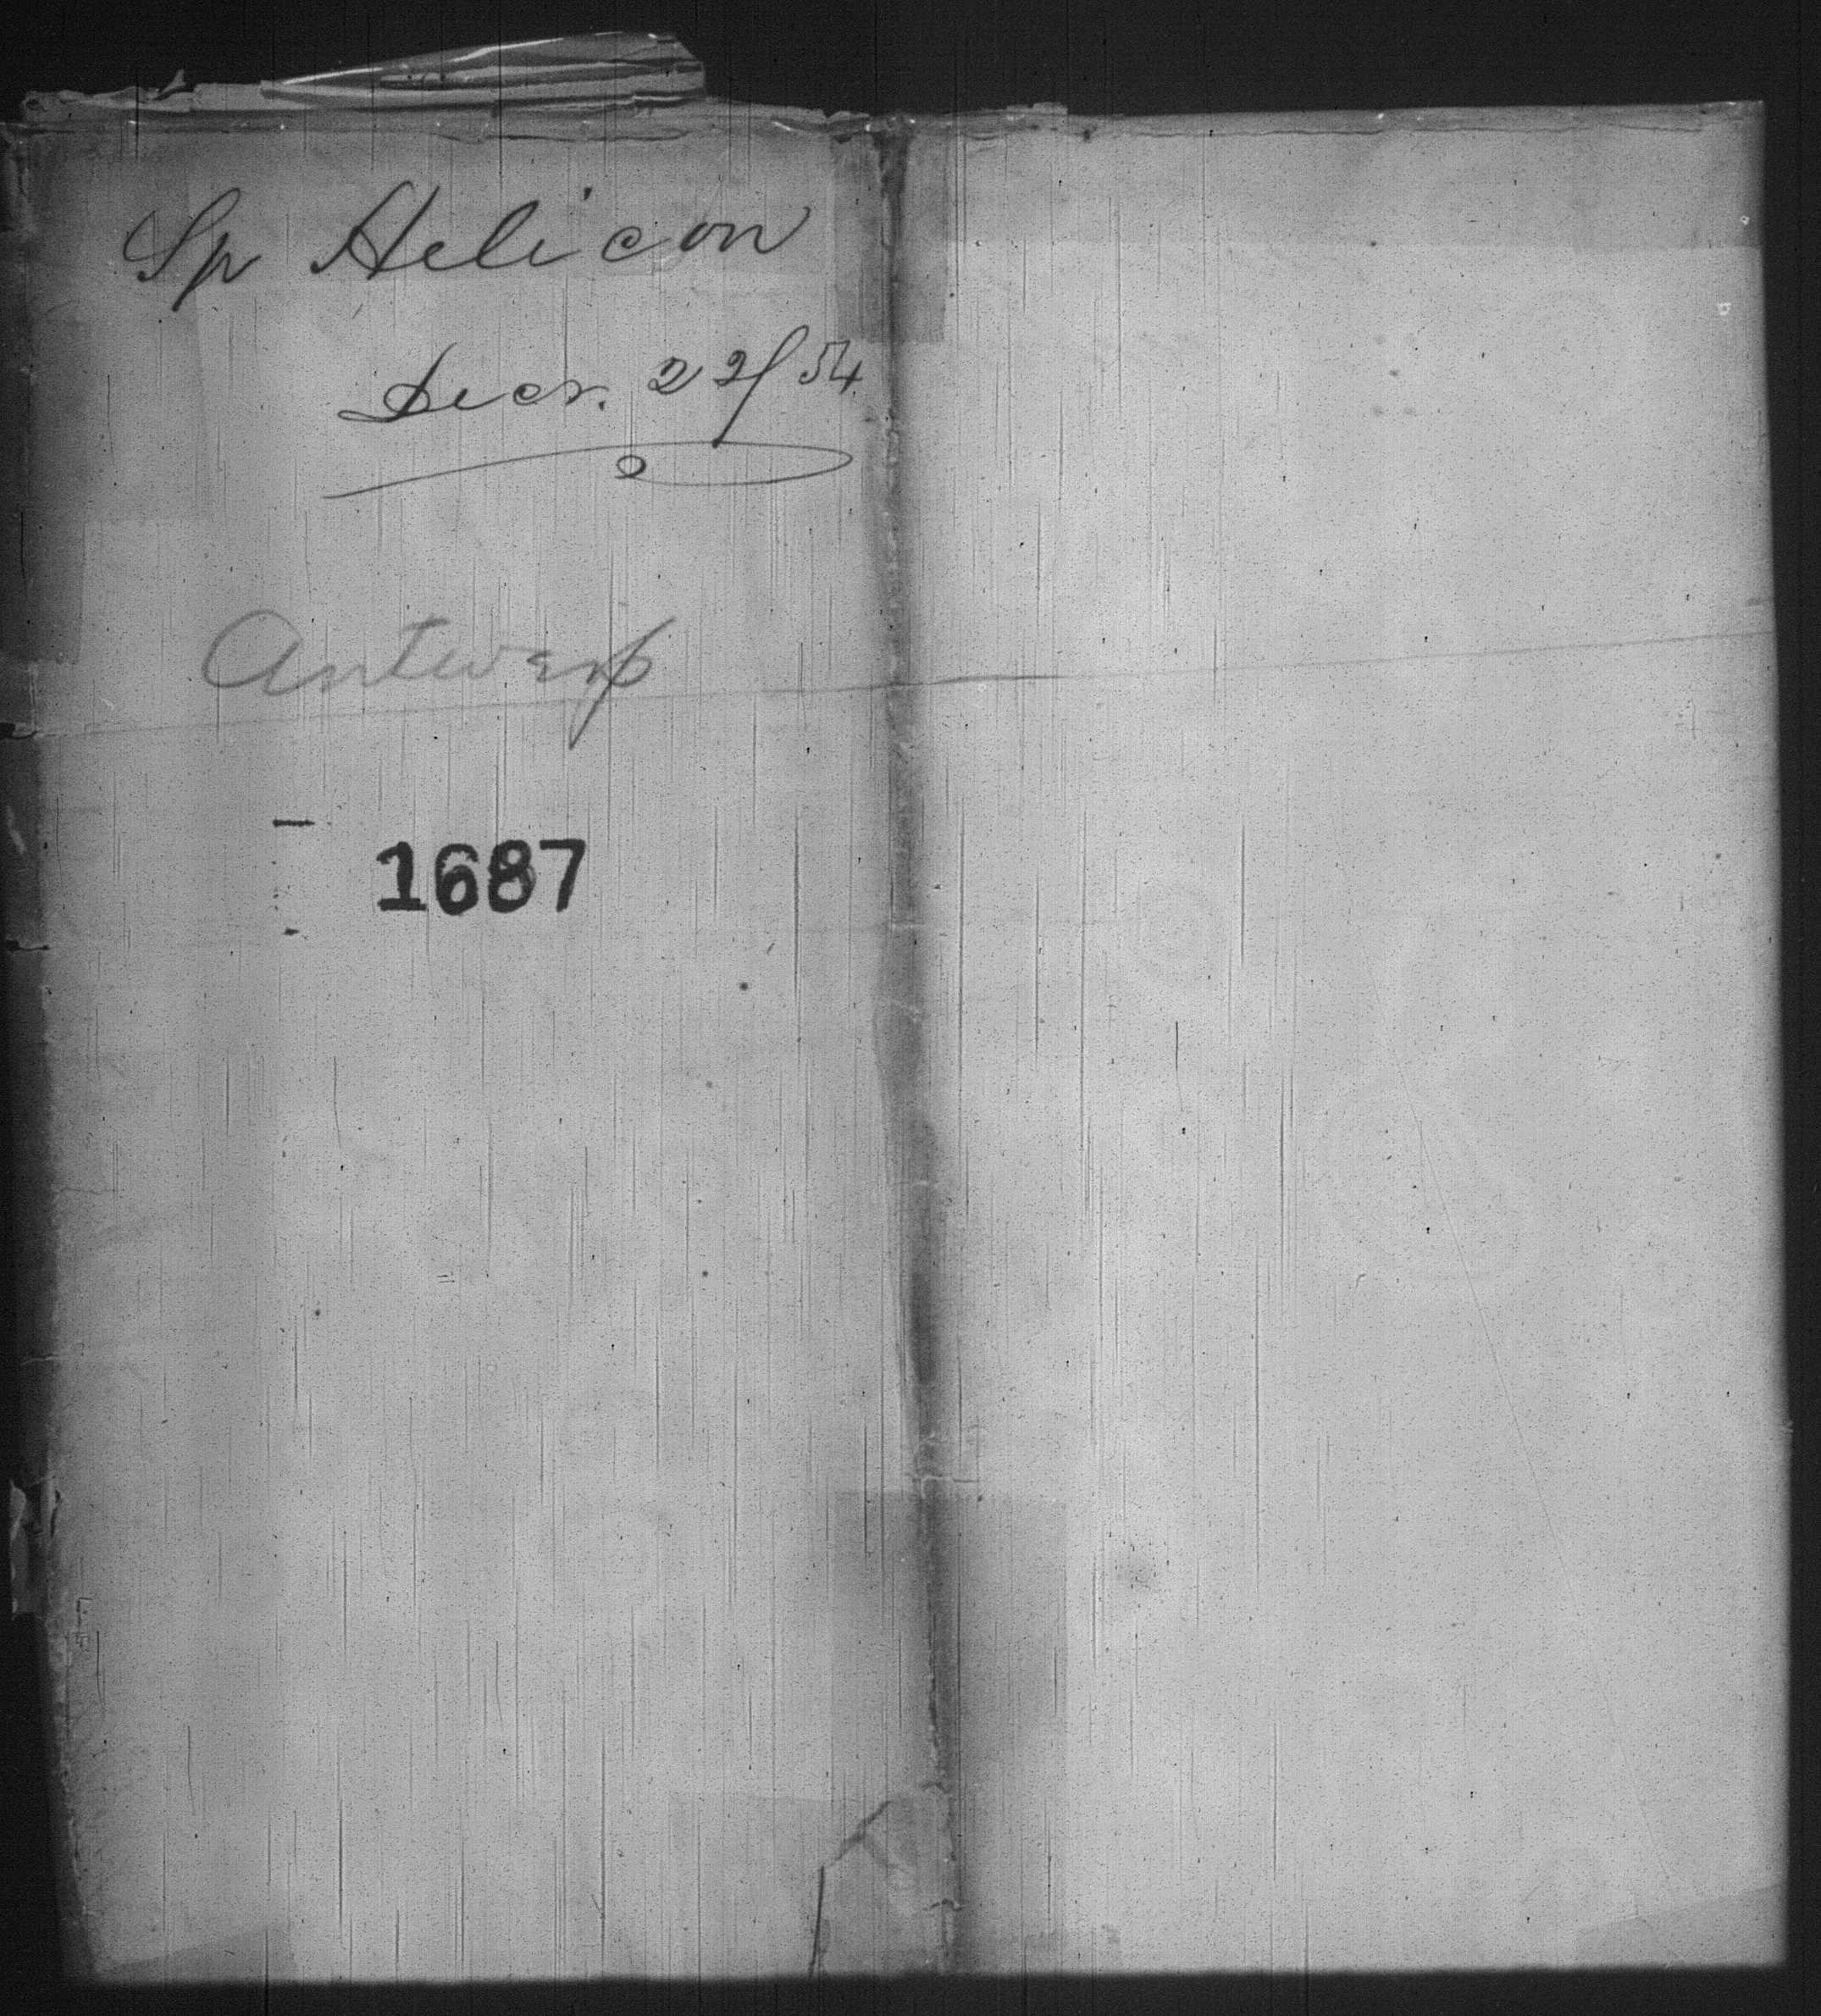 Sp Helicon
Decr. 22/54
Antwerp
1687